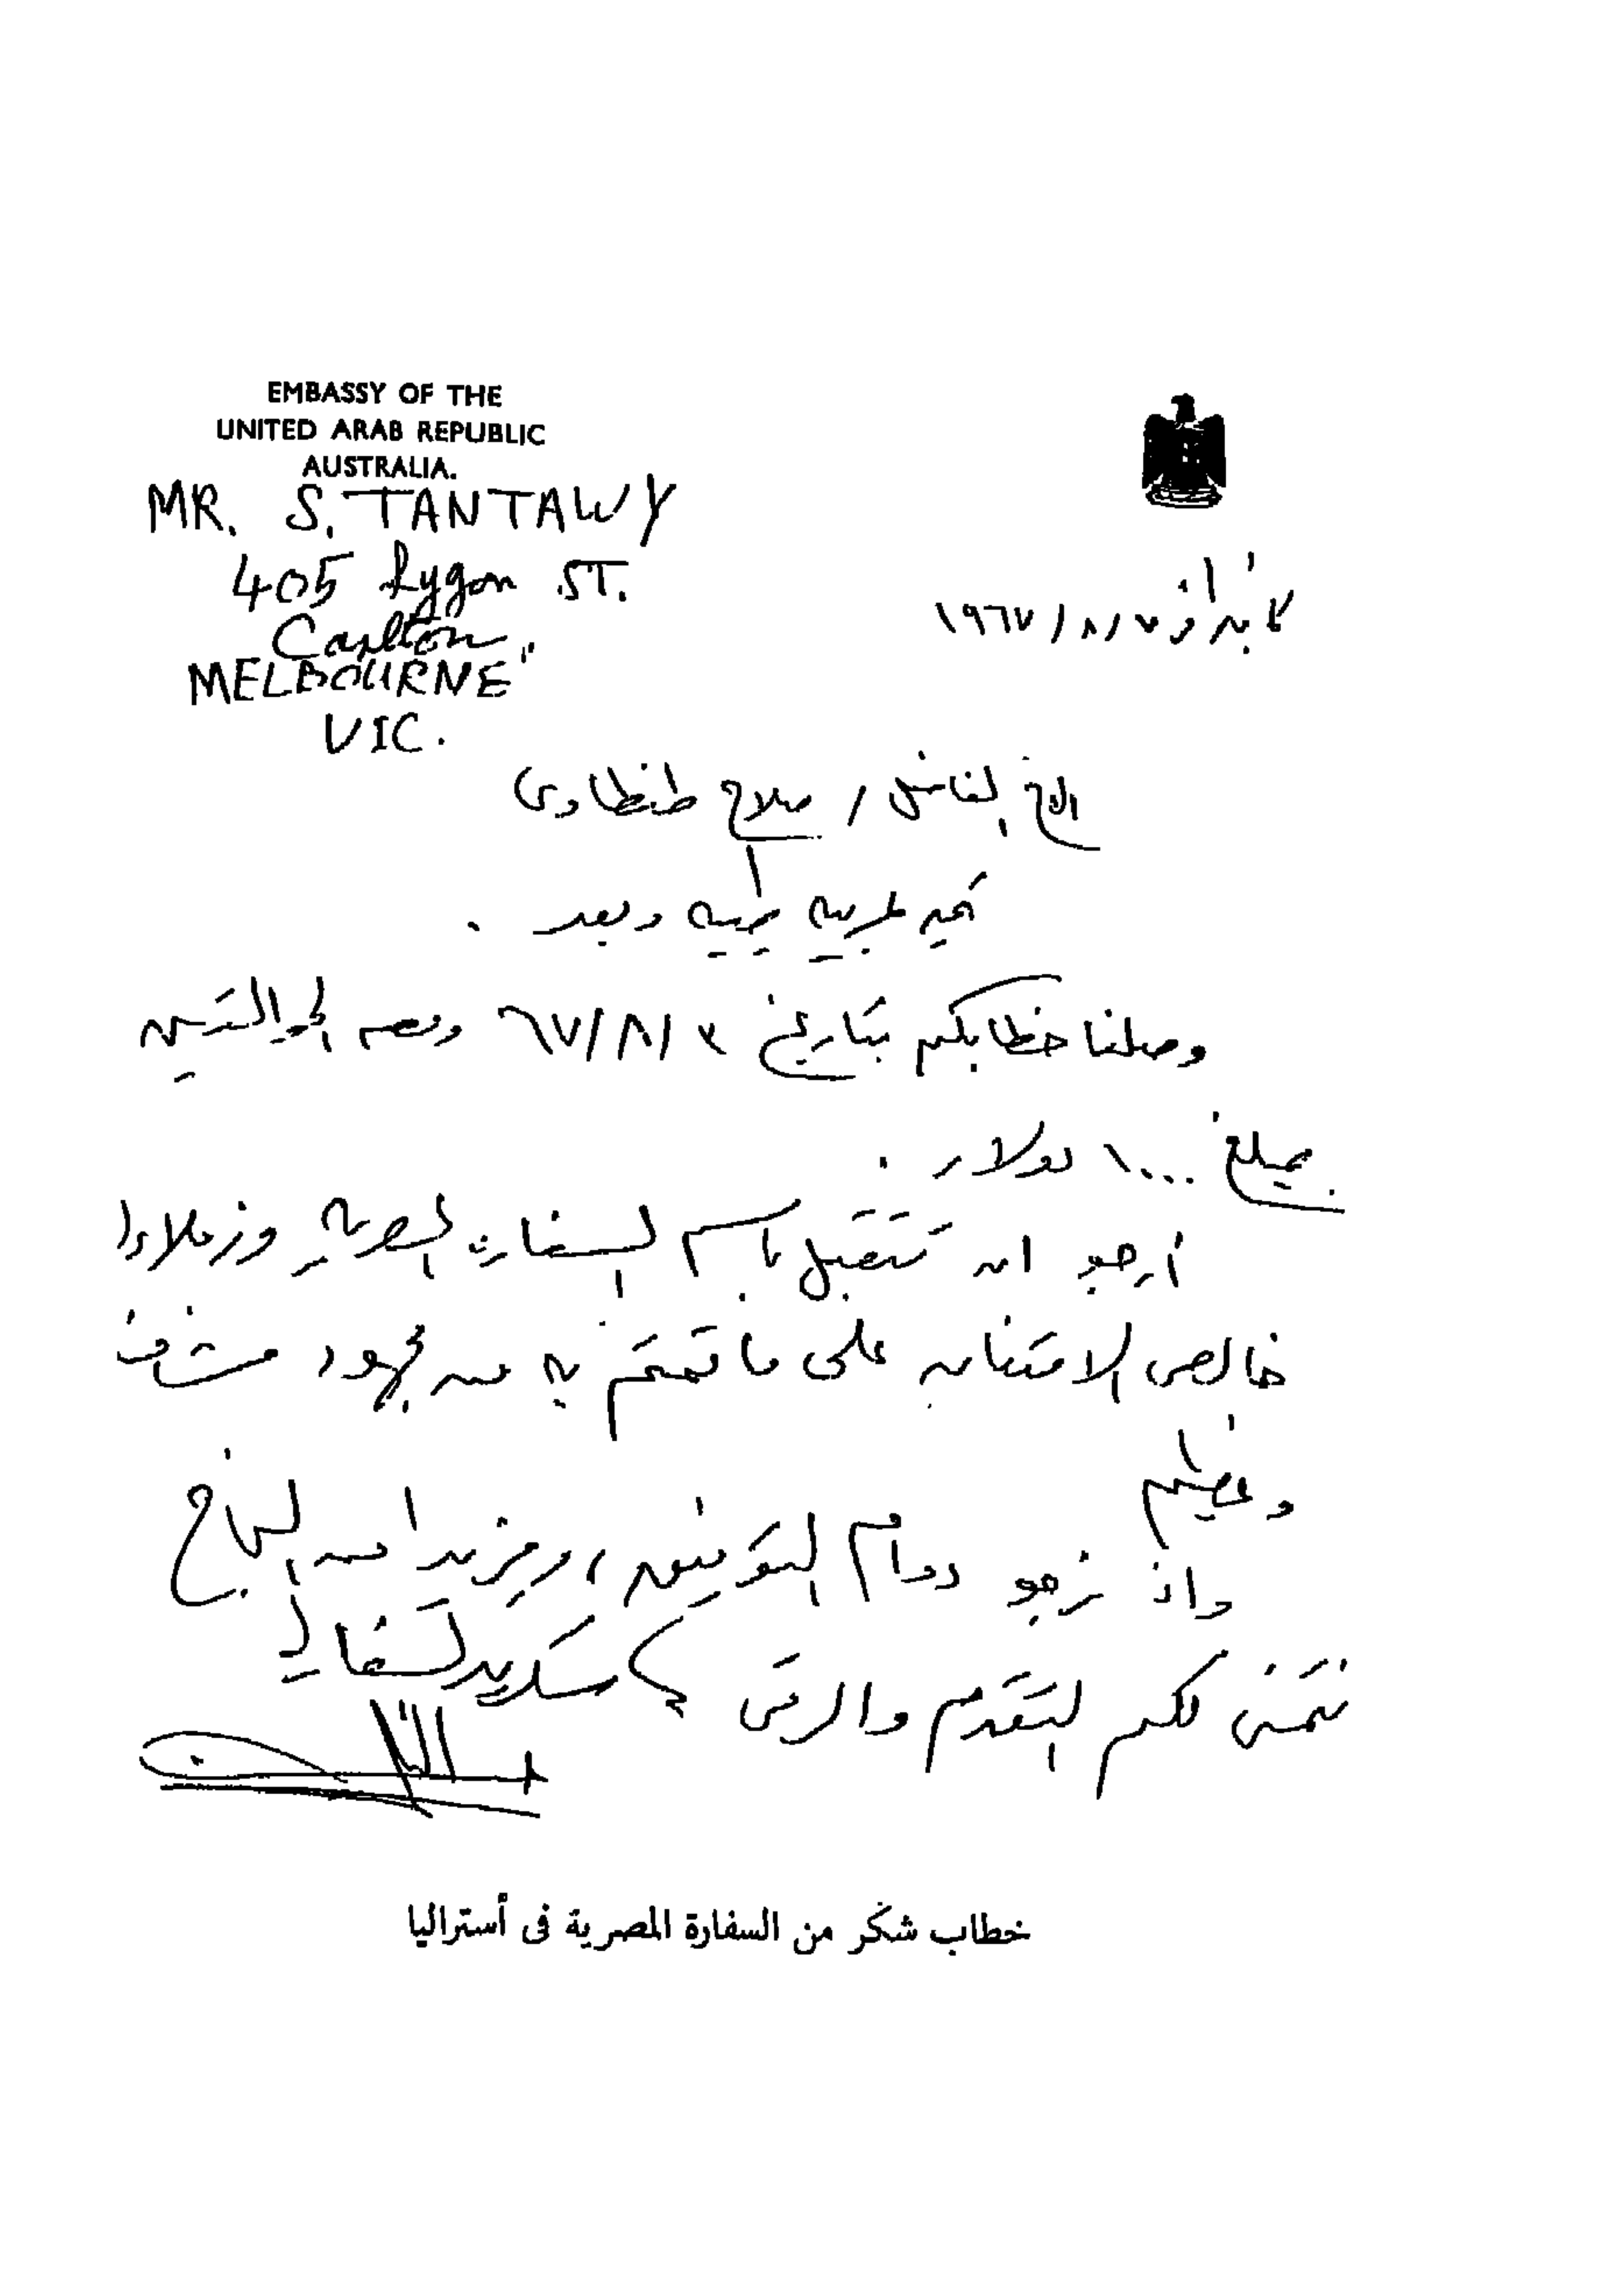 EMBASSY OF THE
UNITED ARAB REPUBLIC
AUSTRALIA.
MR. S. TANTAWY
405 Lygon ST.
Carlton
MELBOURNE"
VIC.
كانبرا في ٧ / ٨ / ١٩٦٧
الاخ الفاضل / صلاح طنطاوى
تحيه عربيه وبعد .
وصلنا خطابكم بتاريخ ٣ / ٨ / ٦٧
بمبلغ ١٠٠٠ دولار .
أرجو ان تتقبل باسم السفارة المصرية وزملاءنا
خالص الامتنان على ما قمتم به من مجهود مشرف
وعظيم
واذ نرجو دوام التوفيق ، ومزيدا من النجاح
نتمنى لكم التقدم والرقى
سكرتير السفارة
خطاب شكر من السفارة المصرية فى أستراليا